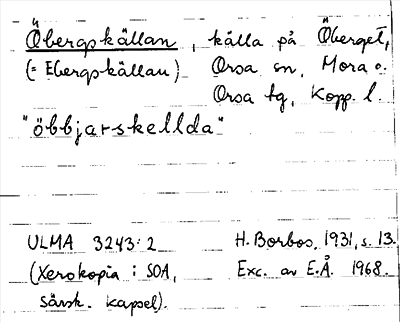 Öbergskällan, källa på Öberget,
(= Ebergskällan) Orsa sn, Mora o.
Orsa tg, Kopp. l.
"öbbjarskellda"
ULMA 3243:2 H. Borbos, 1931, s. 13.
(Xerokopia i SOA, Exc. av E.Å. 1968.
särsk. kapsel).